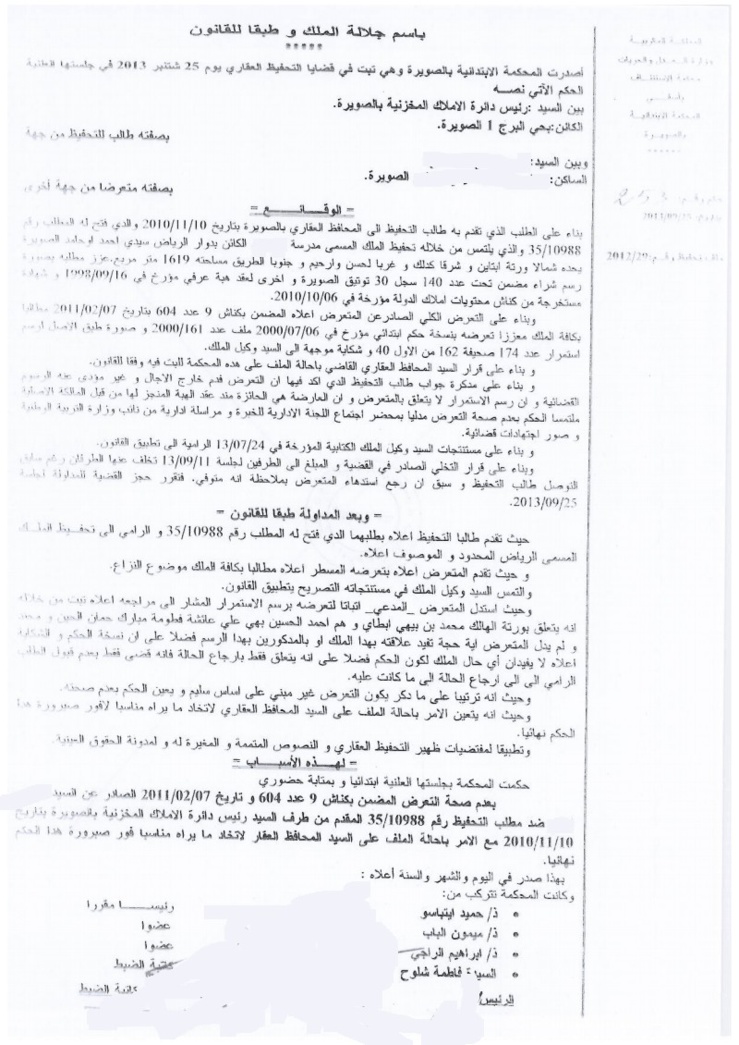 باسم جلالة الملك و طبقا للقانون
*****
المملكة المغربية
وزارة العدل والحريات
محكمة الاستئناف
بآسفي
المحكمة الابتدائية
بالصويرة
******
أصدرت المحكمة الابتدائية بالصويرة وهي تبت في قضايا التحفيظ العقاري يوم 25 شتنبر 2013 في جلستها العلنية
الحكم الآتي نصه
بين السيد :رئيس دائرة الاملاك المخزنية بالصويرة.
الكائن:بحي البرج 1 الصويرة.
بصفته طالب للتحفيظ من جهة
وبين السيد:
الساكن: الصويرة.
بصفته متعرضا من جهة أخرى
= الوقائع =
بناء على الطلب الذي تقدم به طالب التحفيظ الى المحافظ العقاري بالصويرة بتاريخ 2010/11/10 والدي فتح له المطلب رقم
35/10988 والذي يلتمس من خلاله تحفيظ الملك المسمى مدرسة الكائن بدوار الرياض سيدي احمد اوحامد الصويرة
يحده شمالا ورثة ابتاين و شرقا كدلك و غربا لحسن وارحيم و جنوبا الطريق مساحته 1619 متر مربع.عزز مطلبه بصورة
رسم شراء مضمن تحت عدد 140 سجل 30 توثيق الصويرة و اخرى لعقد هبة عرفي مؤرخ في 1998/09/16 و شهادة
مستخرجة من كناش محتويات املاك الدولة مؤرخة في 2010/10/06.
وبناء على التعرض الكلي الصادرعن المتعرض اعلاه المضمن بكناش 9 عدد 604 بتاريخ 2011/02/07 مطالبا
بكافة الملك معززا تعرضه بنسخة حكم ابتدائي مؤرخ في 2000/07/06 ملف عدد 2000/161 و صورة طبق الاصل لرسم
استمرار عدد 174 صحيفة 162 من الاول 40 و شكاية موجهة الى السيد وكيل الملك.
و بناء على قرار السيد المحافظ العقاري القاضي باحالة الملف على هده المحكمة للبت فيه وفقا للقانون.
و بناء على مدكرة جواب طالب التحفيظ الدي اكد فيها ان التعرض قدم خارج الاجال و غير مؤدى عنه الرسوم
القضائية و ان رسم الاستمرار لا يتعلق بالمتعرض و ان العارضة هي الحائزة مند عقد الهبة المنجز لها من قبل المالكة الاصلية
ملتمسا الحكم بعدم صحة التعرض مدليا بمحضر اجتماع اللجنة الادارية للخبرة و مراسلة ادارية من نائب وزارة التربية الوطنية
و صور اجتهادات قضائية.
و بناء على مستنتجات السيد وكيل الملك الكتابية المؤرخة في 13/07/24 الرامية الى تطبيق القانون.
وبناء على قرار التخلي الصادر في القضية و المبلغ الى الطرفين لجلسة 13/09/11 تخلف عنها الطرفان رغم سابق
التوصل طالب التحفيظ و سبق ان رجع استدعاء المتعرض بملاحظة انه متوفي. فتقرر حجز القضية للمداولة لجلسة
2013/09/25.
= وبعد المداولة طبقا للقانون =
حيث تقدم طالبا التحفيظ اعلاه بطلبهما الدي فتح له المطلب رقم 35/10988 و الرامي الى تحفيظ الملك
المسمى الرياض المحدود و الموصوف اعلاه.
و حيث تقدم المتعرض اعلاه بتعرضه المسطر اعلاه مطالبا بكافة الملك موضوع النزاع.
والتمس السيد وكيل الملك في مستنتجاته التصريح بتطبيق القانون.
وحيث استدل المتعرض _المدعي_ اثباتا لتعرضه برسم الاستمرار المشار الى مراجعه اعلاه تبت من خلاله
انه يتعلق بورثة الهالك محمد بن بيهي ابطاي و هم احمد الحسين بهي علي عائشة فطومة مبارك جمعان الحين و محمد
و لم يدل المتعرض اية حجة تفيد علاقته بهدا الملك او بالمدكورين بهدا الرسم فضلا على ان نسخة الحكم و الشكاية
اعلاه لا يفيدان أي حال الملك لكون الحكم فضلا على انه يتعلق فقط بارجاع الحالة فانه قضى فقط بعدم قبول الطلب
الرامي الى الى ارجاع الحالة الى ما كانت عليه.
وحيث انه ترتيبا على ما دكر يكون التعرض غير مبني على اساس سليم و يعين الحكم بعدم صحته.
وحيث انه يتعين الامر باحالة الملف على السيد المحافظ العقاري لاتخاد ما يراه مناسبا لافور صيرورة هدا
الحكم نهائيا.
وتطبيقا لمقتضيات ظهير التحفيظ العقاري و النصوص المتممة و المغيرة له و لمدونة الحقوق العينية.
= لهذه الأسباب =
حكمت المحكمة بجلستها العلنية ابتدائيا و بمثابة حضوري
بعدم صحة التعرض المضمن بكناش 9 عدد 604 و تاريخ 2011/02/07 الصادر عن السيد
ضد مطلب التحفيظ رقم 35/10988 المقدم من طرف السيد رئيس دائرة الاملاك المخزنية بالصويرة بتاريخ
2010/11/10 مع الامر باحالة الملف على السيد المحافظ العقار لاتخاد ما يراه مناسبا فور صيرورة هدا الحكم
نهائيا.
بهذا صدر في اليوم والشهر والسنة أعلاه :
وكانت المحكمة تتركب من:
• ذ/ حميد ايتباسو رئيسا مقررا
• ذ/ ميمون الباب عضوا
• ذ/ ابراهيم الراجي عضوا
• السيدة فاطمة شلوح كاتبة الضبط
الرئيس كاتبة الضبط